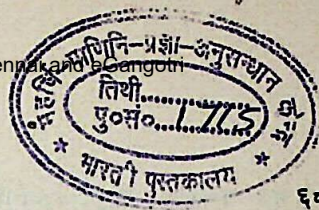 ennai and eGangotri
महर्षि पाणिनि-प्रज्ञा-अनुसन्धान केन्द्र
तिथी..............
पु०सं०. 1715
* भारती पुस्तकालय *